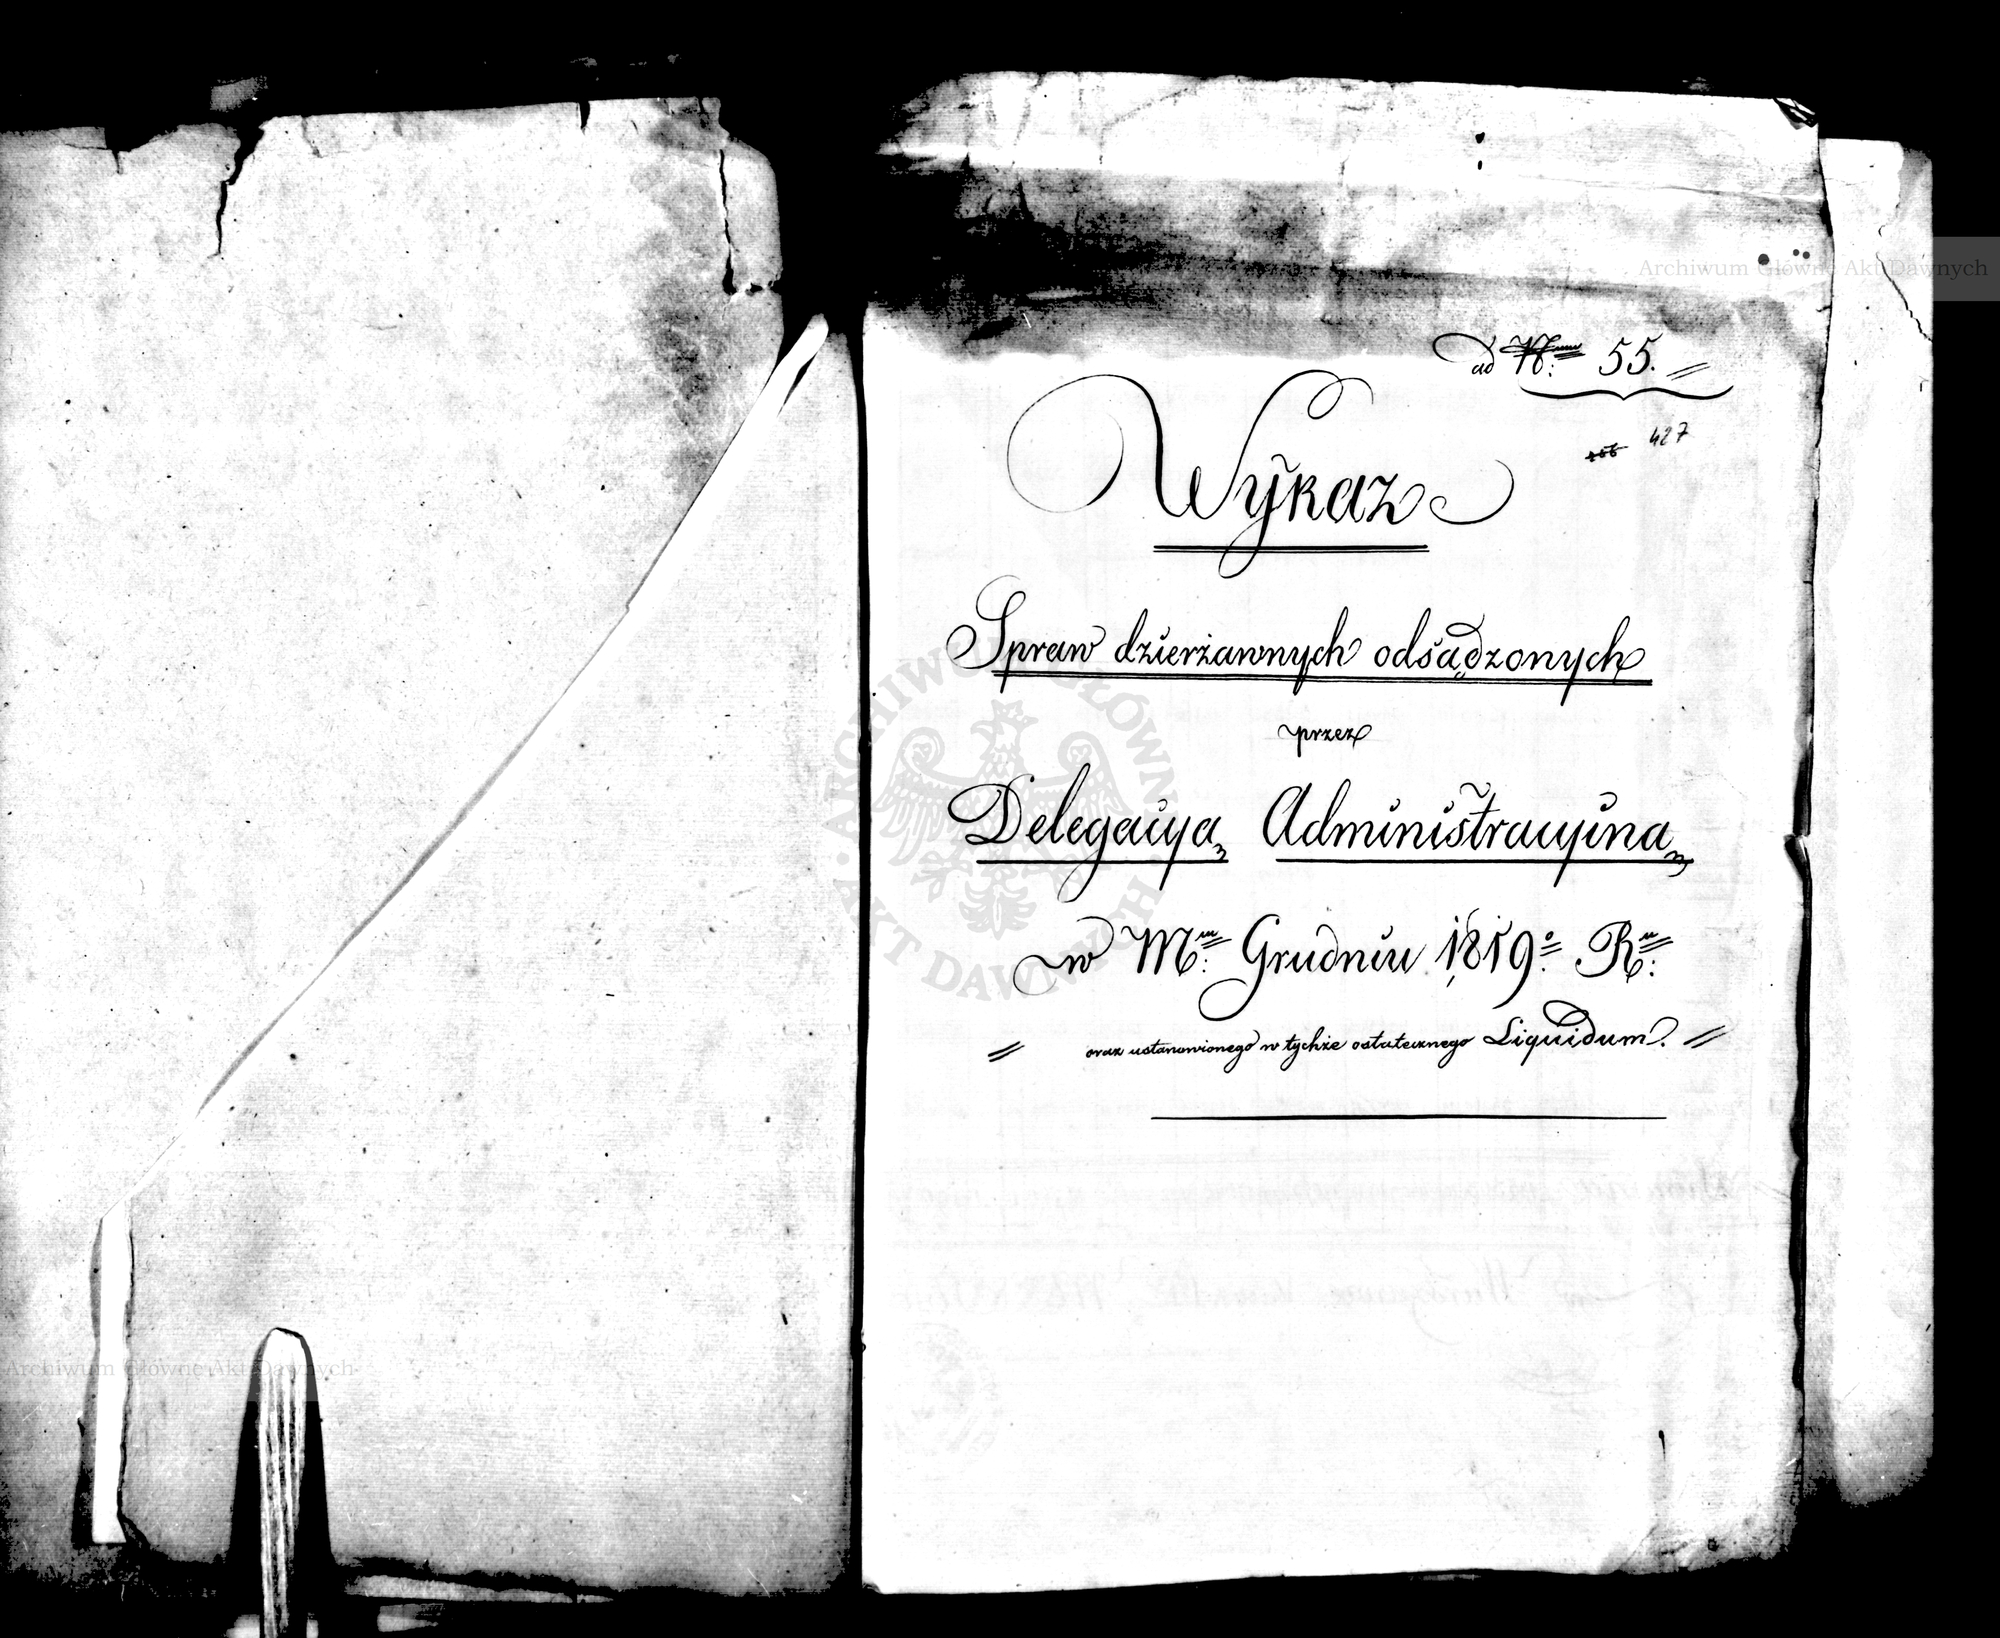 ad N: 55.
427
Wykaz
Spraw dzierżawnych odsądzonych
przez
Delegacyą Administracyiną
w M: Grudniu 1819º R:
oraz ustanowionego w tychże ostatecznego Liquidum.
Archiwum Główne Akt Dawnych
Archiwum Główne Akt Dawnych
ARCHIWUM GŁÓWNE AKT DAWNYCH